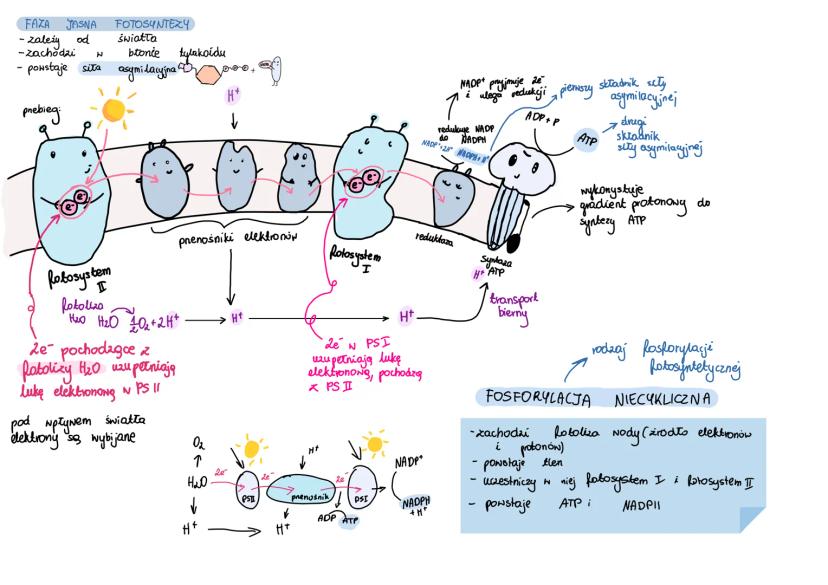 FAZA JASNA FOTOSYNTEZY
- zależy od światła
- zachodzi w błonie tylakoidu
- powstaje siła asymilacyjna
+
przebieg:
H⁺
NADP⁺ przyjmuje 2e⁻
i ulega redukcji
pierwszy składnik siły
asymilacyjnej
redukuje NADP
do NADPH
NADP⁺+2H⁺ NADPH+H⁺
ADP+P
ATP
drugi
składnik
siły asymilacyjnej
wykorzystuje
gradient protonowy do
syntezy ATP
e⁻ e⁻
e⁻ e⁻
fotosystem
II
przenośniki elektronów
fotosystem
I
reduktaza
syntaza
ATP
H⁺
transport
bierny
fotoliza
H₂O H₂O ½O₂+2H⁺
H⁺
H⁺
2e⁻ pochodzące z
fotolizy H₂O uzupełniają
lukę elektronową w PS II
2e⁻ w PSI
uzupełniają lukę
elektronową, pochodzą
z PS II
pod wpływem światła
elektrony są wybijane
rodzaj fosforylacji
fotosyntetycznej
FOSFORYLACJA NIECYKLICZNA
- zachodzi fotoliza wody (źródło elektronów
i protonów)
- powstaje tlen
- uczestniczy w niej fotosystem I i fotosystem II
- powstaje ATP i NADPH
O₂
H₂O
2e⁻
PSII
2e⁻
H⁺
przenośnik
2e⁻
PSI
NADP⁺
NADPH
+ H⁺
ADP ATP
H⁺
H⁺